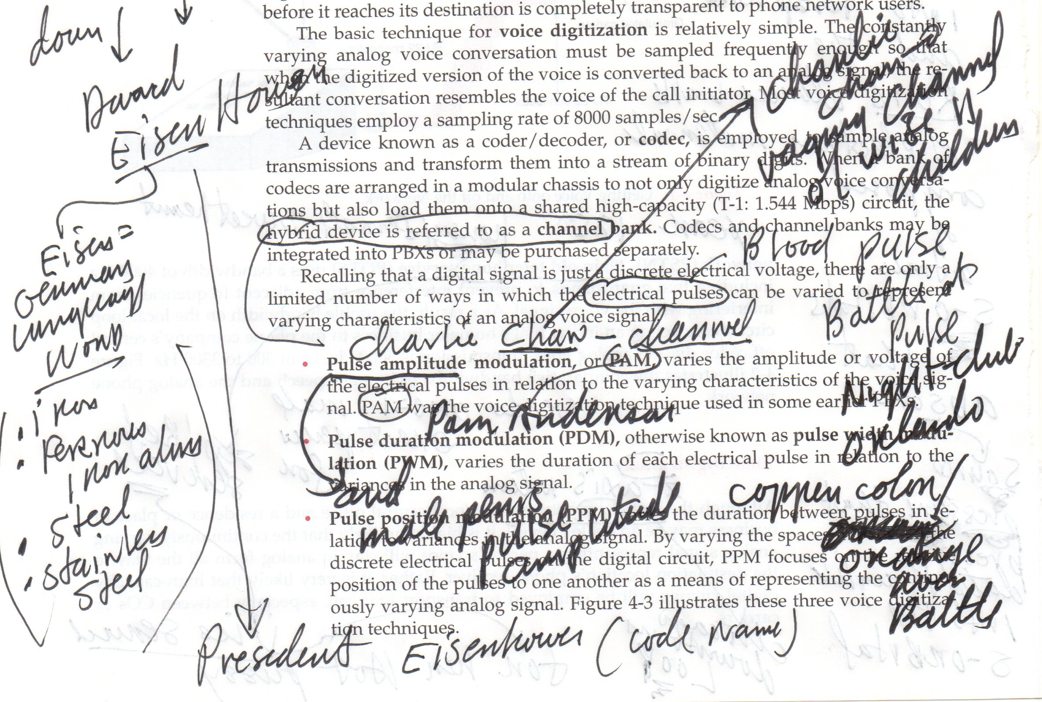 before it reaches its destination is completely transparent to phone network users.
The basic technique for voice digitization is relatively simple. The constantly
varying analog voice conversation must be sampled frequently enough so that
when the digitized version of the voice is converted back to an analog signal, the re-
sultant conversation resembles the voice of the call initiator. Most voice digitization
techniques employ a sampling rate of 8000 samples/sec.
A device known as a coder/decoder, or codec, is employed to sample analog
transmissions and transform them into a stream of binary digits. When a bank of
codecs are arranged in a modular chassis to not only digitize analog voice conversa-
tions but also load them onto a shared high-capacity (T-1: 1.544 Mbps) circuit, the
hybrid device is referred to as a channel bank. Codecs and channel banks may be
integrated into PBXs or may be purchased separately.
Recalling that a digital signal is just a discrete electrical voltage, there are only a
limited number of ways in which the electrical pulses can be varied to represent
varying characteristics of an analog voice signal
• Pulse amplitude modulation, or PAM, varies the amplitude or voltage of
the electrical pulses in relation to the varying characteristics of the voice sig-
nal. PAM was the voice digitization technique used in some earlier PBXs.
• Pulse duration modulation (PDM), otherwise known as pulse width modu-
lation (PWM), varies the duration of each electrical pulse in relation to the
variances in the analog signal.
• Pulse position modulation (PPM) varies the duration between pulses in re-
lation to variances in the analog signal. By varying the spaces the
discrete electrical pulses the digital circuit, PPM focuses on the
position of the pulses to one another as a means of representing the continu-
ously varying analog signal. Figure 4-3 illustrates these three voice digitiza-
tion techniques.
down
Award
Eisen Hower
Eisen=
Germany
language
word
• iron
• Ferrous
iron alum
• steel
• stainless
steel
President Eisenhower (code Name)
Charlie
Chan
Channel
children
Blood pulse
Battle at
Pulse
Night-club
Orlando
Charlie Chan - channel
Pam Anderson
said
male penis
pulse
amplitude
copper color/
orange
Battle